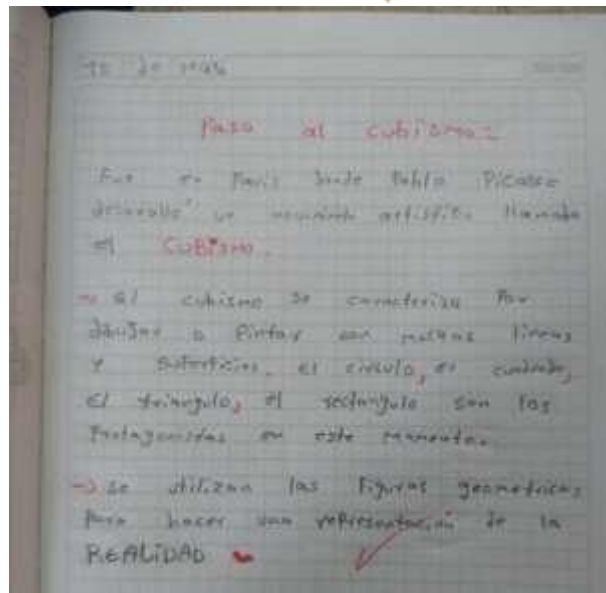 de
Paso al cubismo:
Fue en Paris donde Pablo Picasso
desarrollo' un movimiento artistico llamado
el CUBISMO.
→ el cubismo se caracteriza Por
dibujar o Pintar con muchas lineas
y Superficies. el circulo, el cuadrado,
el triangulo, el rectangulo son los
Protagonistas en este momento.
→ se utilizan las Figuras geometricas
Para hacer una representacion de la
REALIDAD